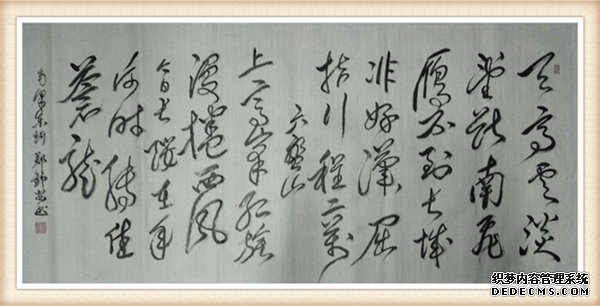 天高云淡
望断南飛
雁不到长城
非好漢屈
指行程二萬
六盘山
上高峰红旗
漫捲西风
今日长缨在手
何时缚住
苍龙
织梦内容管理系统
DEDECMS.COM